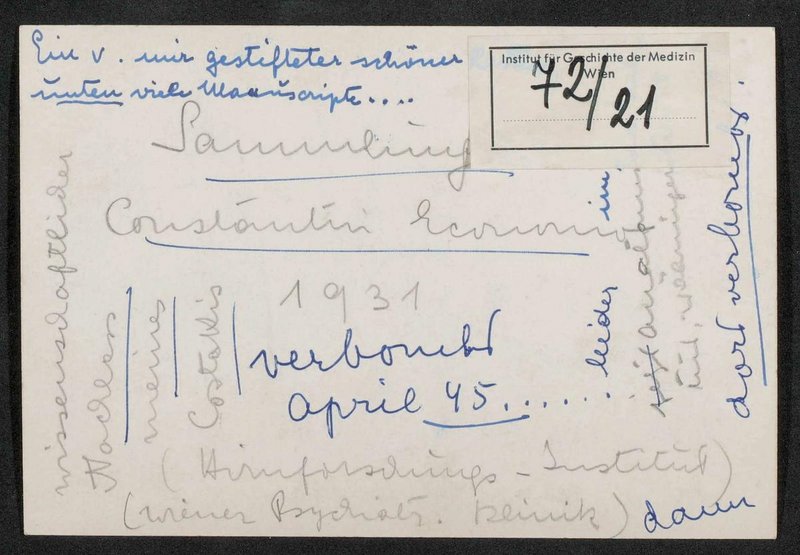 Ein v. mir gestifteter schöner
unten viele Manuscripte....
Institut für Geschichte der Medizin
Wien
72/21
Sammlung
Constantin Economo
1931
verbombt
April 45......
leider im
dort verbombt.
wissenschaftlicher
Nachlass
meines
Costakis
(Hirnforschungs-Institut)
(wiener Psychiatr. Klinik) dann